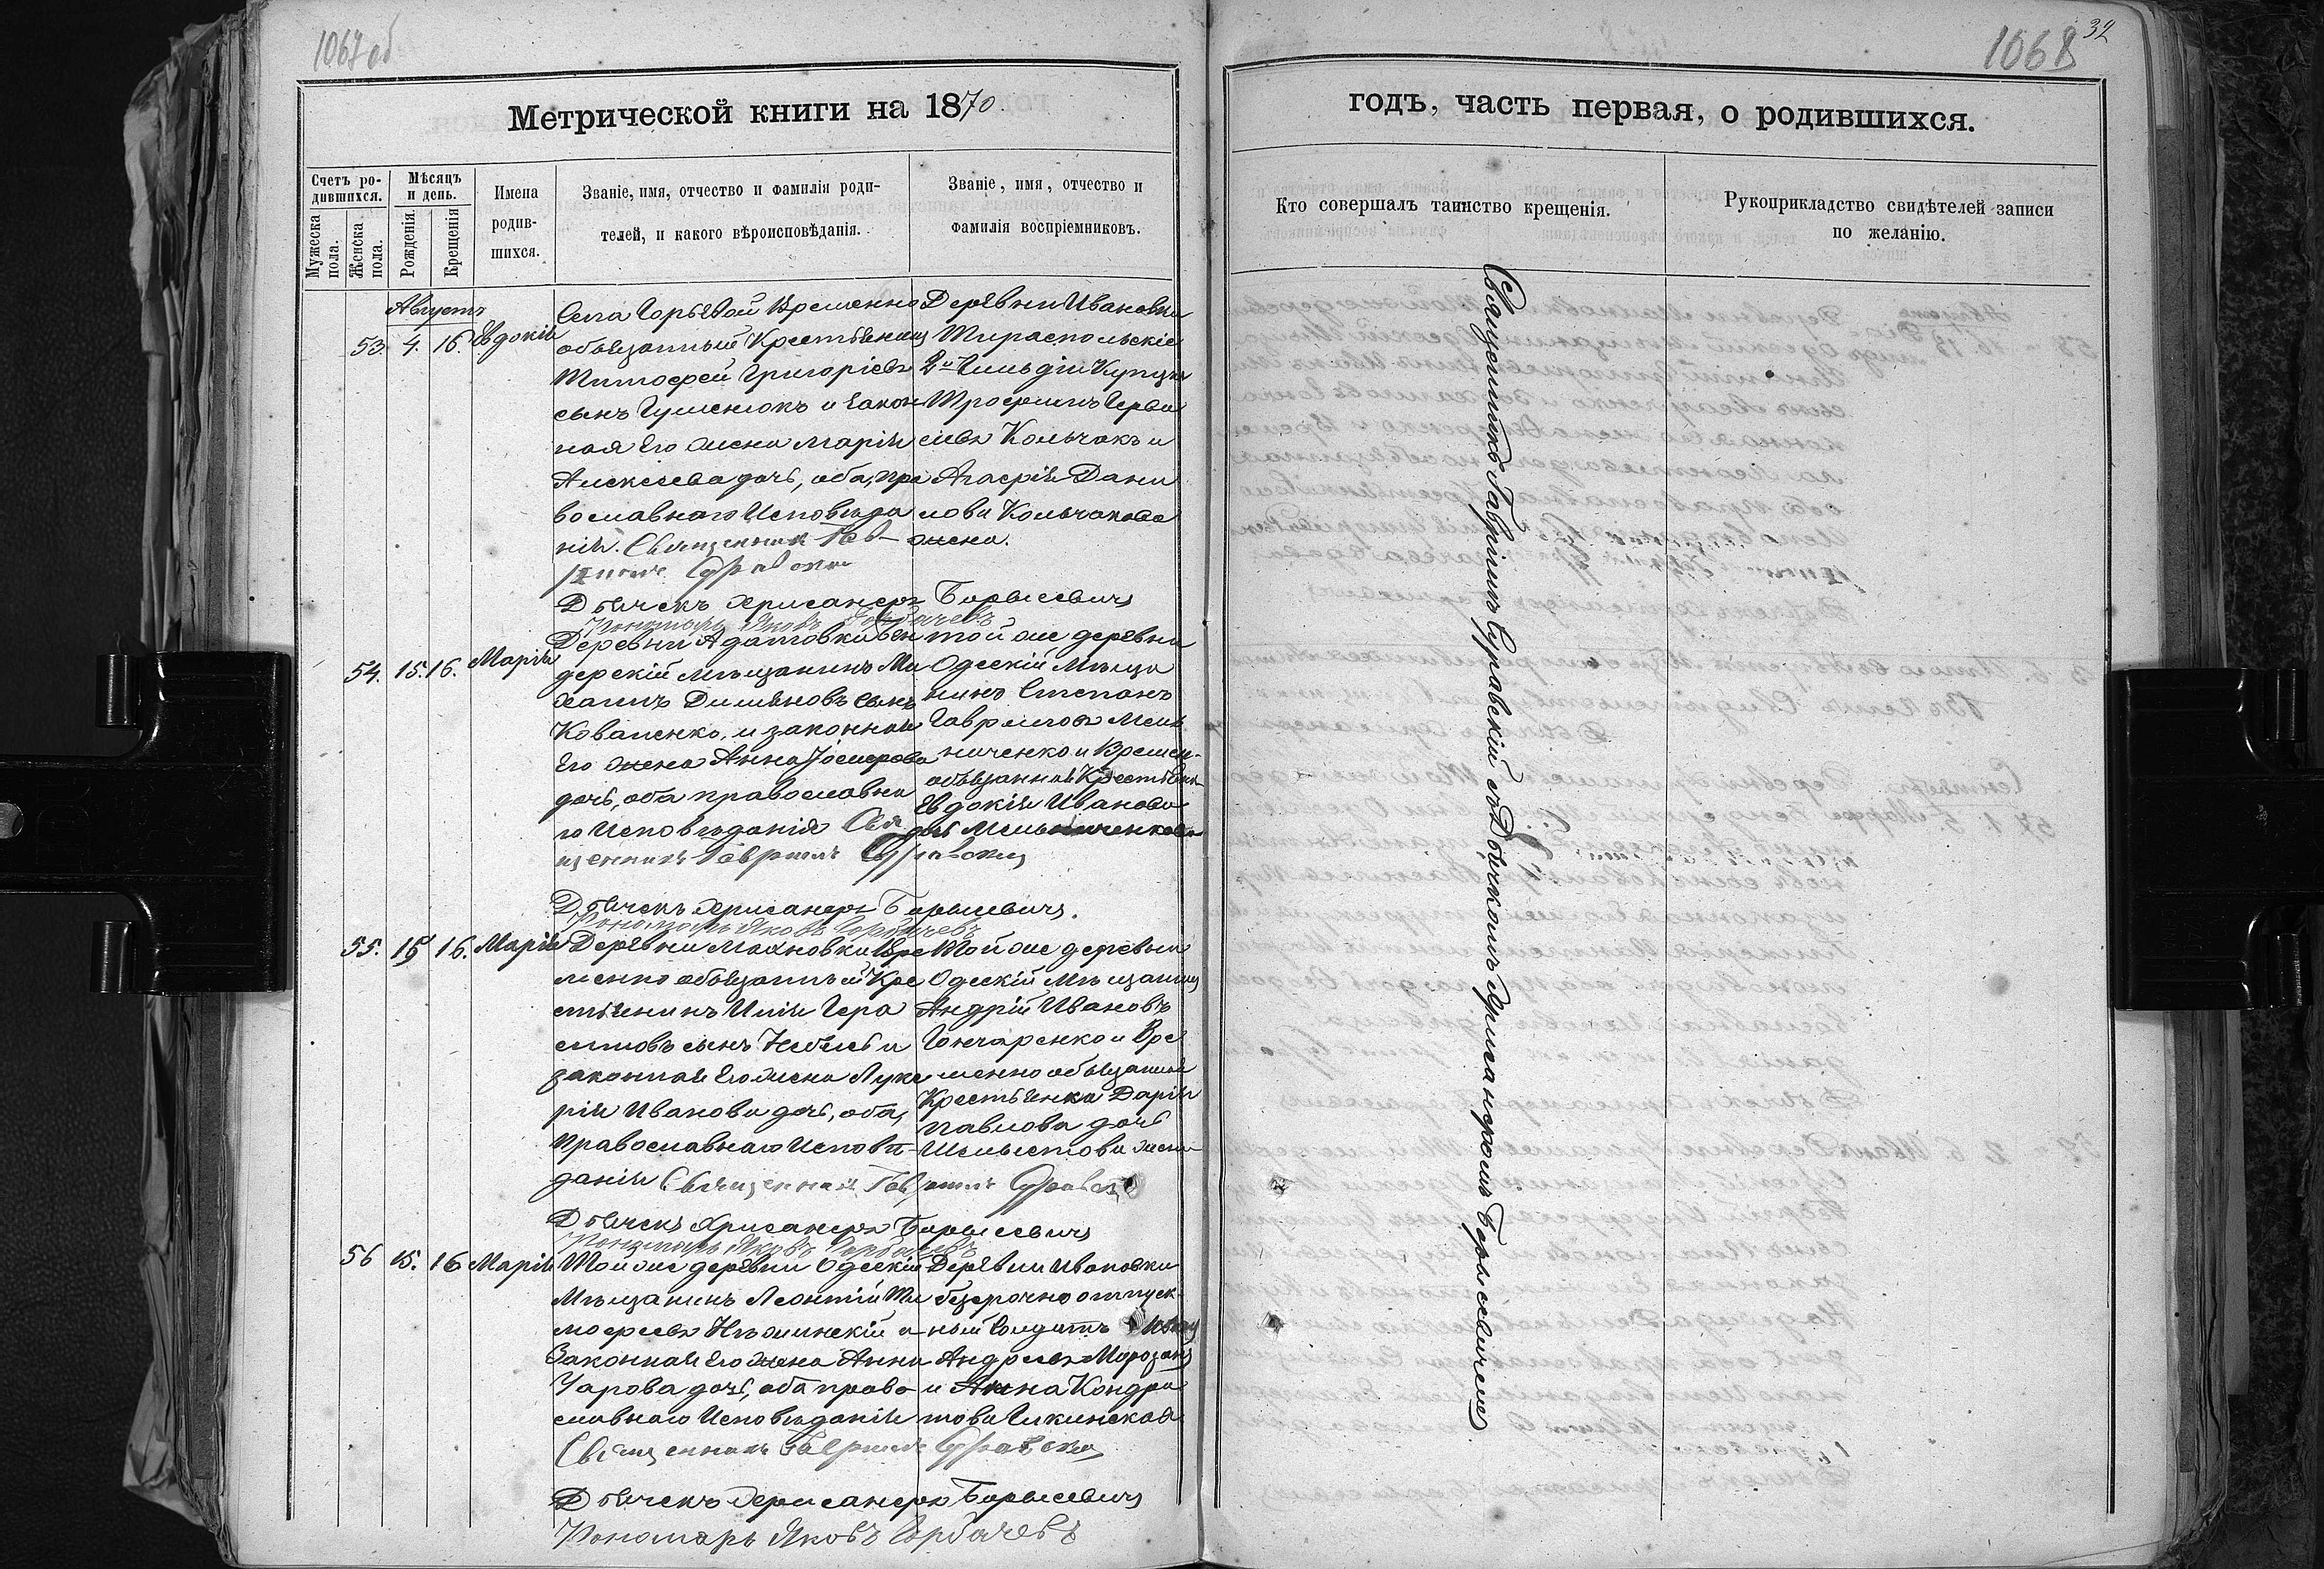 1067 об
1068
32
Метрической книги на 1870.
годъ, часть первая, о родившихся.
Счетъ ро-
дившихся.
Мужеска пола.
Женска пола.
Мѣсяцъ
и день.
Рожденія.
Крещенія
Имена
родив-
шихся.
Званіе, имя, отчество и фамилія роди-
телей, и какого вѣроисповѣданія.
Званіе, имя, отчество и
фамилія воспріемниковъ.
Кто совершалъ таинство крещенія.
Рукоприкладство свидѣтелей записи
по желанію.
Августъ
53. 4. 16. Евдокія
Села временно
обязанный Крестьянинъ
Тимофей Григоріевъ
сынъ Гуменюкъ и закон
ная Его жена Марія
Алексѣева дочь, оба, пра
вославнаго Исповѣда
нія. Священникъ Гав-
ріилъ Суравскій
Деревни Ивановки
Тираспольскіе
2й Гильдіи Купцы
Трофимъ
Кольчакъ и
Агафія Дани
лова Кольчакова
жена.
Дьячекъ Хрисанфъ Борысевичъ
Пономарь Яковъ Горбачевъ
54. 15. 16. Марія
Деревни Адамовки Бен
дерскій мѣщанинъ Ми
хаилъ сынъ
Коваленко, и законная
Его жена Анна Іосифова
дочь, оба православна
го Исповѣданія Свя
щенникъ Гавріилъ Суравскій
той же деревни
Одескій Мѣща
нинъ Степанъ
Гавриловъ Мель
ниченко и Времен-
обязанная Крестьянка
Евдокія Иванова
дочь Мельниченкова
Дьячекъ Хрисанфъ Борысевичъ.
Пономарь Яковъ Горбачевъ
55. 15 16. Марія
Деревни Махновки Вре
менно обязанный Кре
стьянинъ Илія Гера
симовъ сынъ и
законная Его жена Луке
рія Иванова дочь, оба,
Православнаго Исповѣ-
данія Священникъ Гавріилъ Суравскій
Той же деревни
Одескій Мѣщанинъ
Андрій Ивановъ
Гончаренко и Вре
менно обязанная
Крестьянка Дарія
Павлова дочь
жена
Дьячекъ Хрисанфъ Борысевичъ
Пономарь Яковъ Горбачевъ
56 15. 16 Марія
Той же деревни Одескій
Мѣщанинъ Леонтій Ти
мофеевъ Нѣжинскій и
Законная Его жена Анна
Уарова дочь, оба право
славнаго Исповѣданія
Священникъ Гавріилъ Суравскій
Деревни Ивановки
безсрочно отпуск-
ный Солдатъ Иванъ
Андреевъ Морозанъ
и Анна Кондра
това
Дьячекъ Хрисанфъ Борысевичъ
Пономарь Яковъ Горбачевъ
Священникъ Гавріилъ Суравскій съ Дьячкомъ Хрисанфомъ Борысевичемъ